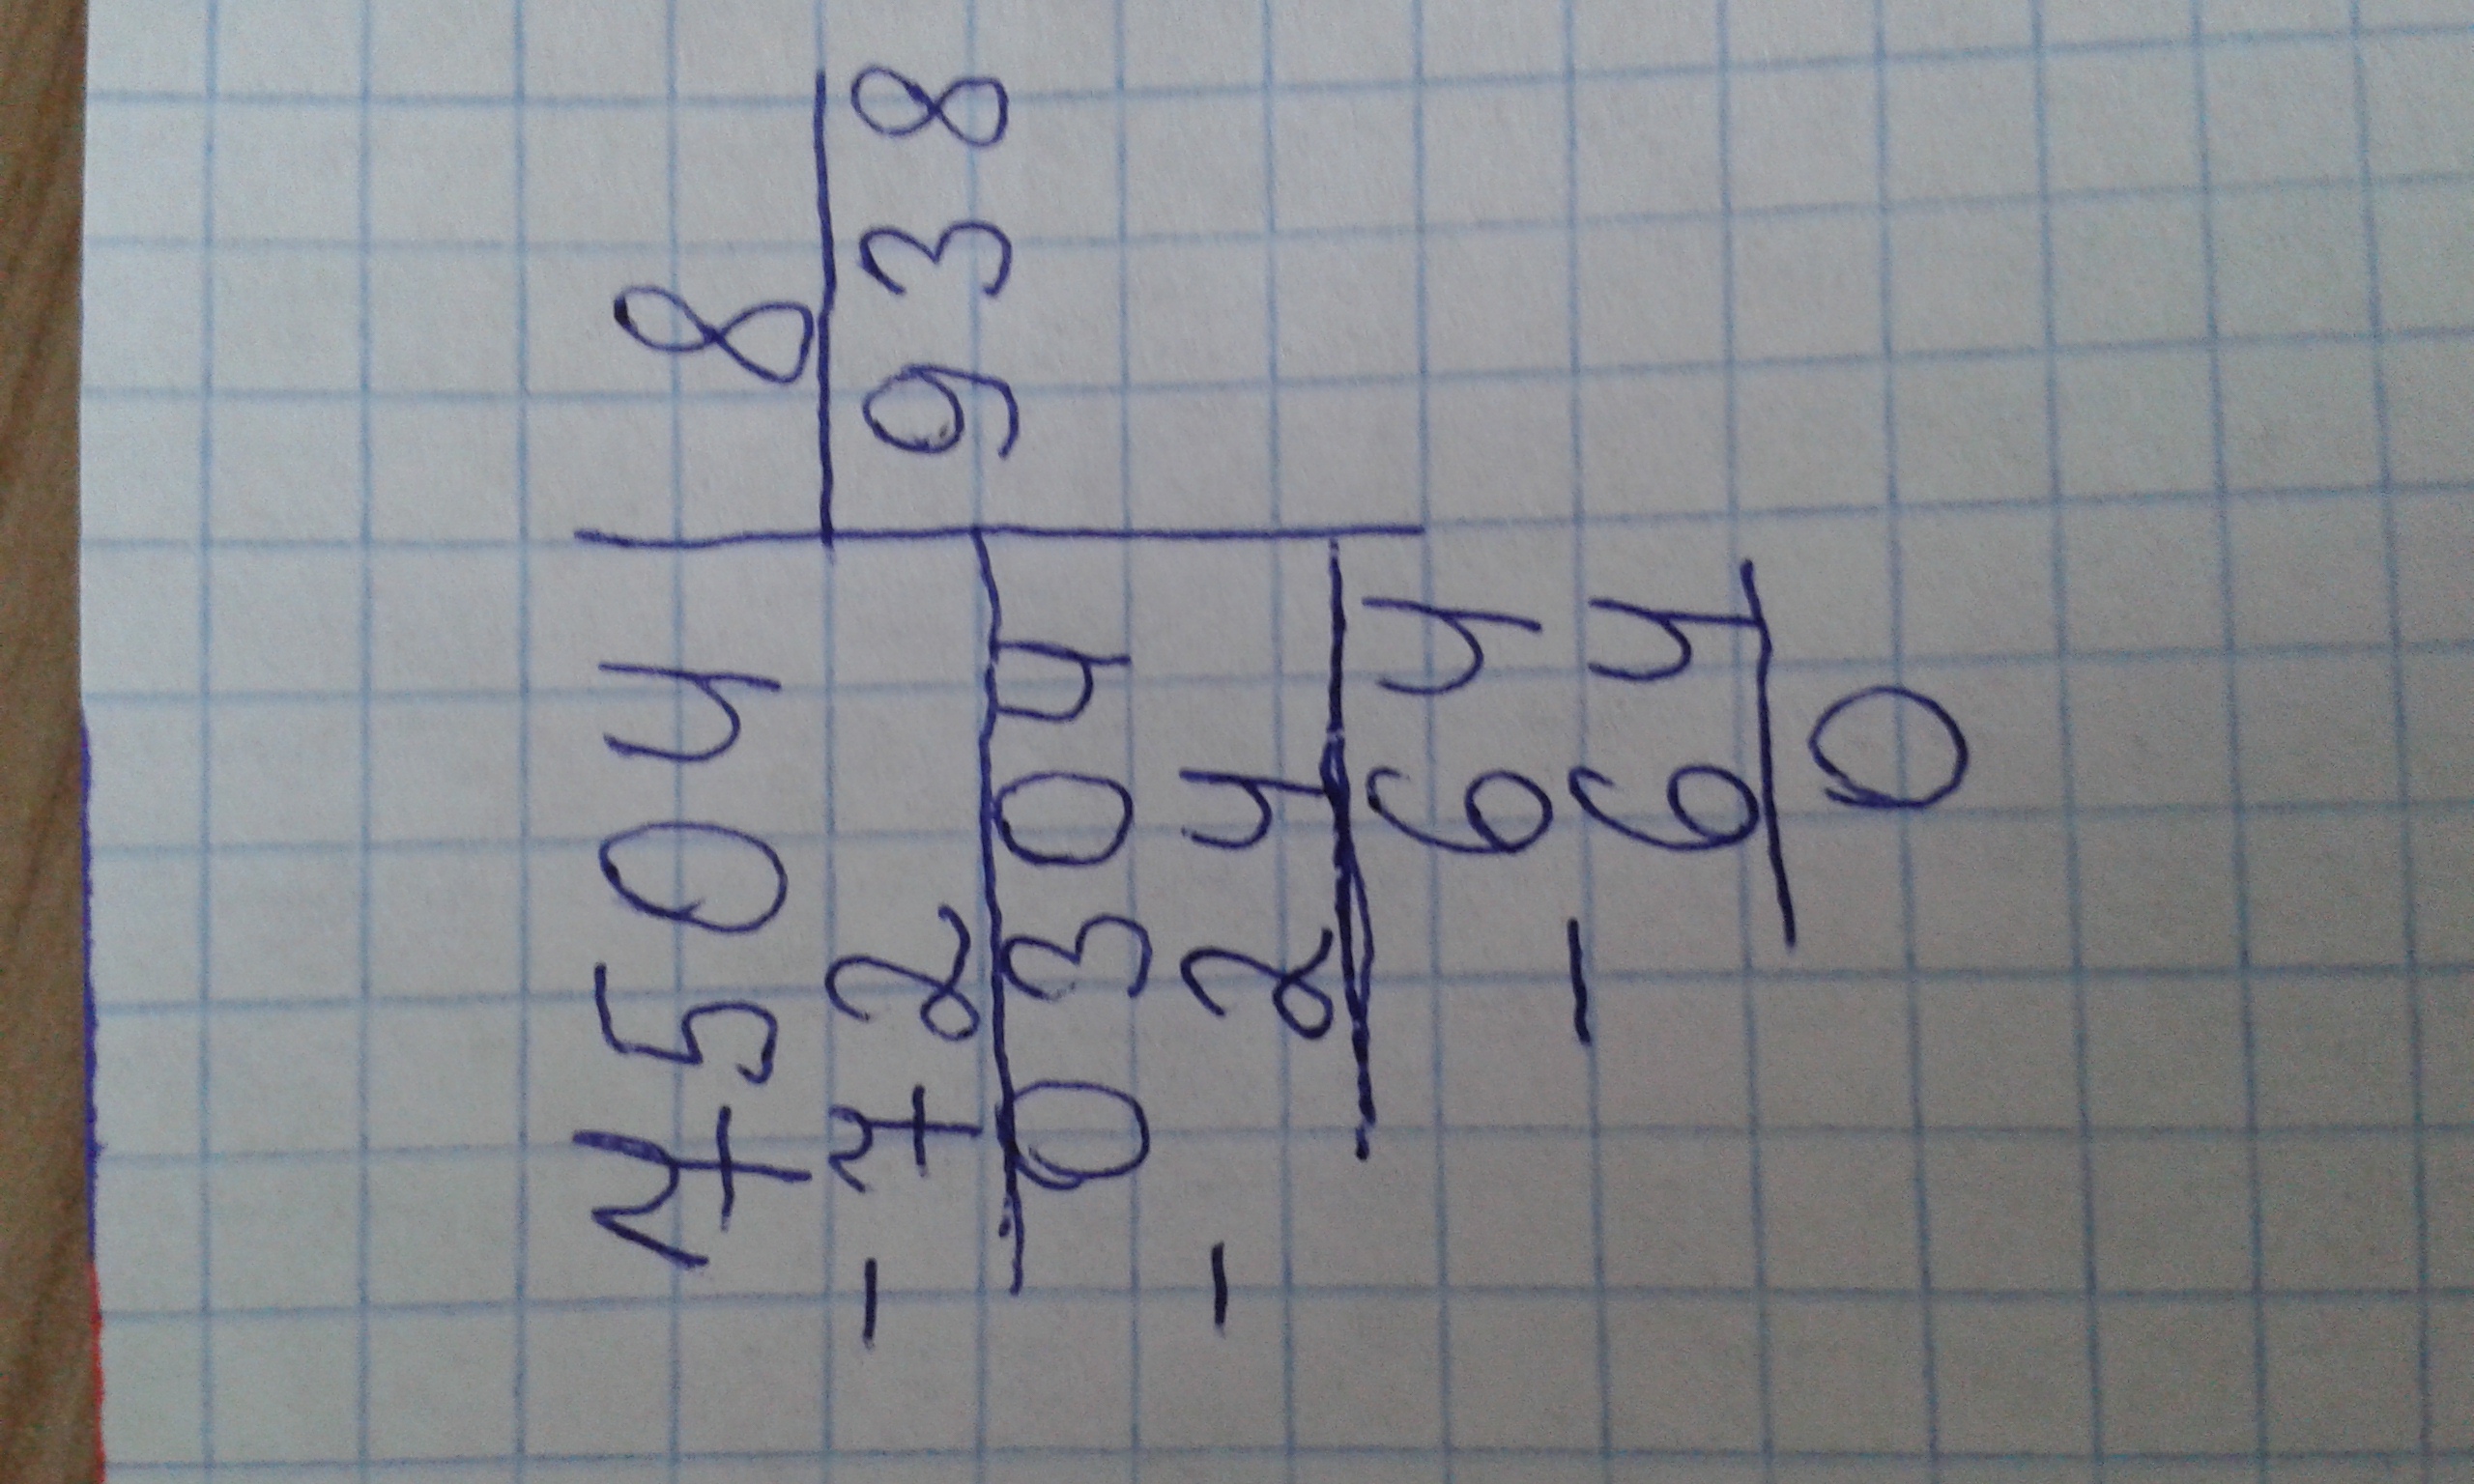 7504 8
- 72 938
0304
- 24
64
- 64
0